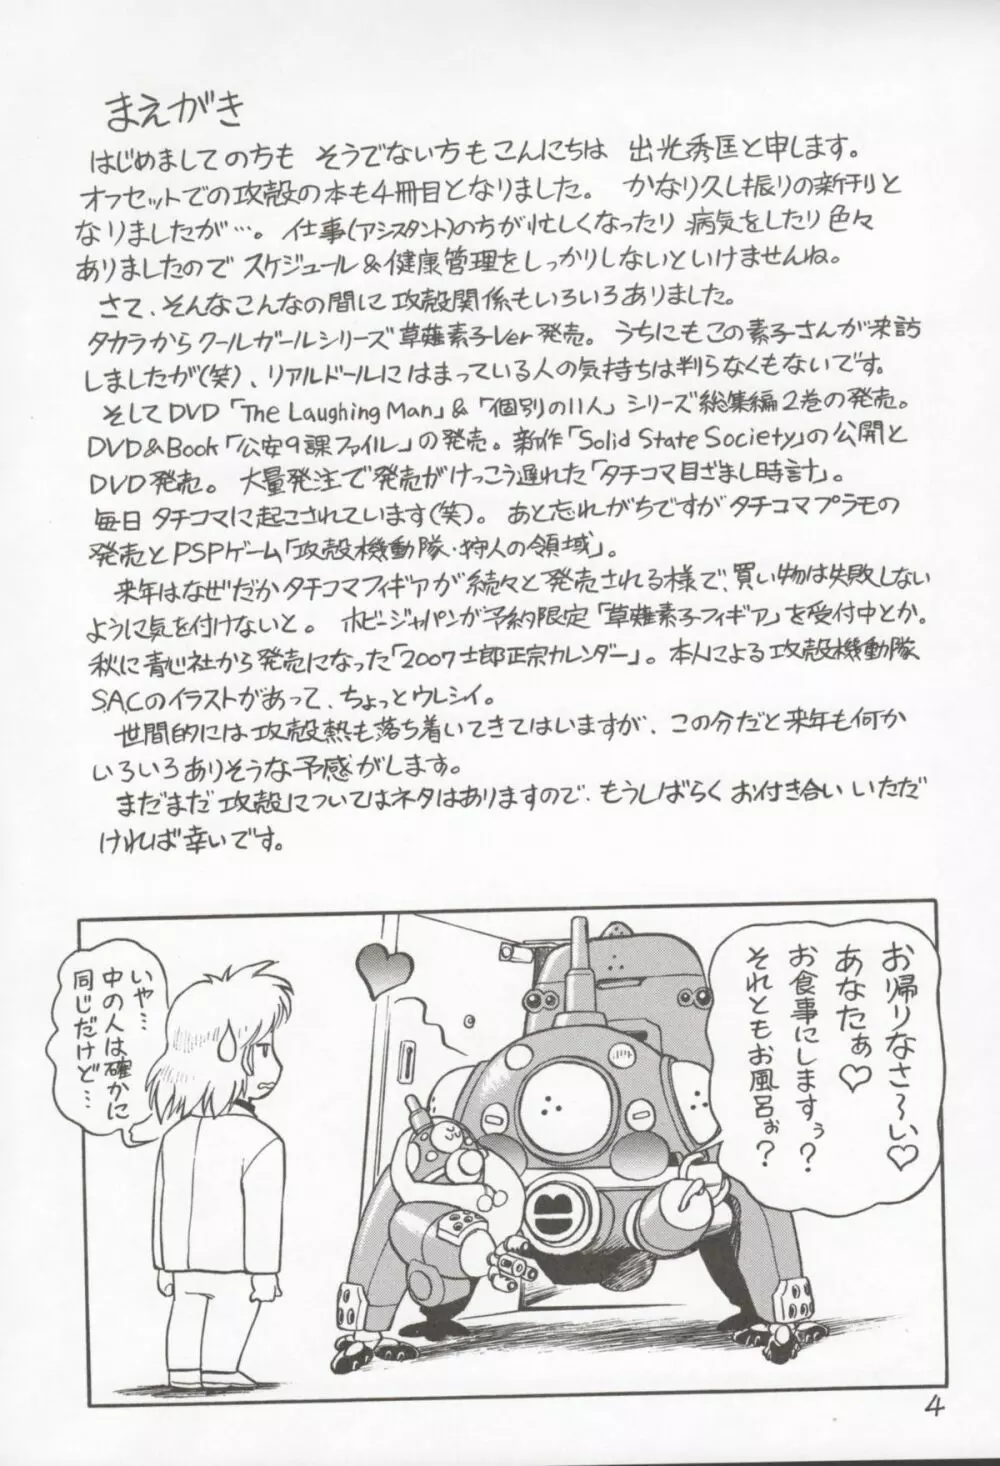 まえがき
はじめましての方も そうでない方もこんにちは 出光秀匡と申します。
オフセットでの攻殻の本も4冊目となりました。 かなり久し振りの新刊と
なりましたが…。仕事(アシスタント)の方が忙しくなったり病気をしたり色々
ありましたのでスケジュール&健康管理をしっかりしないといけませんね。
さて、そんなこんなの間に攻殻関係もいろいろありました。
タカラからクールガールシリーズ草薙素子Ver発売。うちにもこの素子さんが来訪
しましたが(笑)、リアルドールにはまっている人の気持ちは判らなくもないです。
そしてDVD「The Laughing Man」&「個別の11人」シリーズ総集編2巻の発売。
DVD&Book「公安9課ファイル」の発売。新作「Solid State Society」の公開と
DVD発売。 大量発注で発売がけっこう遅れた「タチコマ目ざまし時計」。
毎日タチコマに起こされています(笑)。あと忘れがちですがタチコマプラモの
発売とPSPゲーム「攻殻機動隊・狩人の領域」。
来年はなぜだかタチコマフィギアが続々と発売される様で、買い物は失敗しない
ように気を付けないと。ホビージャパンが予約限定「草薙素子フィギア」を受付中とか。
秋に青心社から発売になった「2007士郎正宗カレンダー」。本人による攻殻機動隊
S.A.Cのイラストがあって、ちょっとウレシイ。
世間的には攻殻熱も落ち着いてきてはいますが、この分だと来年も何か
いろいろありそうな予感がします。
まだまだ攻殻についてはネタはありますので、もうしばらくお付き合いいただ
ければ幸いです。
お帰りなさ～い♡
あなたぁ♡
お食事にしますぅ?
それともお風呂ぉ?
いや…
中の人は確かに
同じだけど…
4